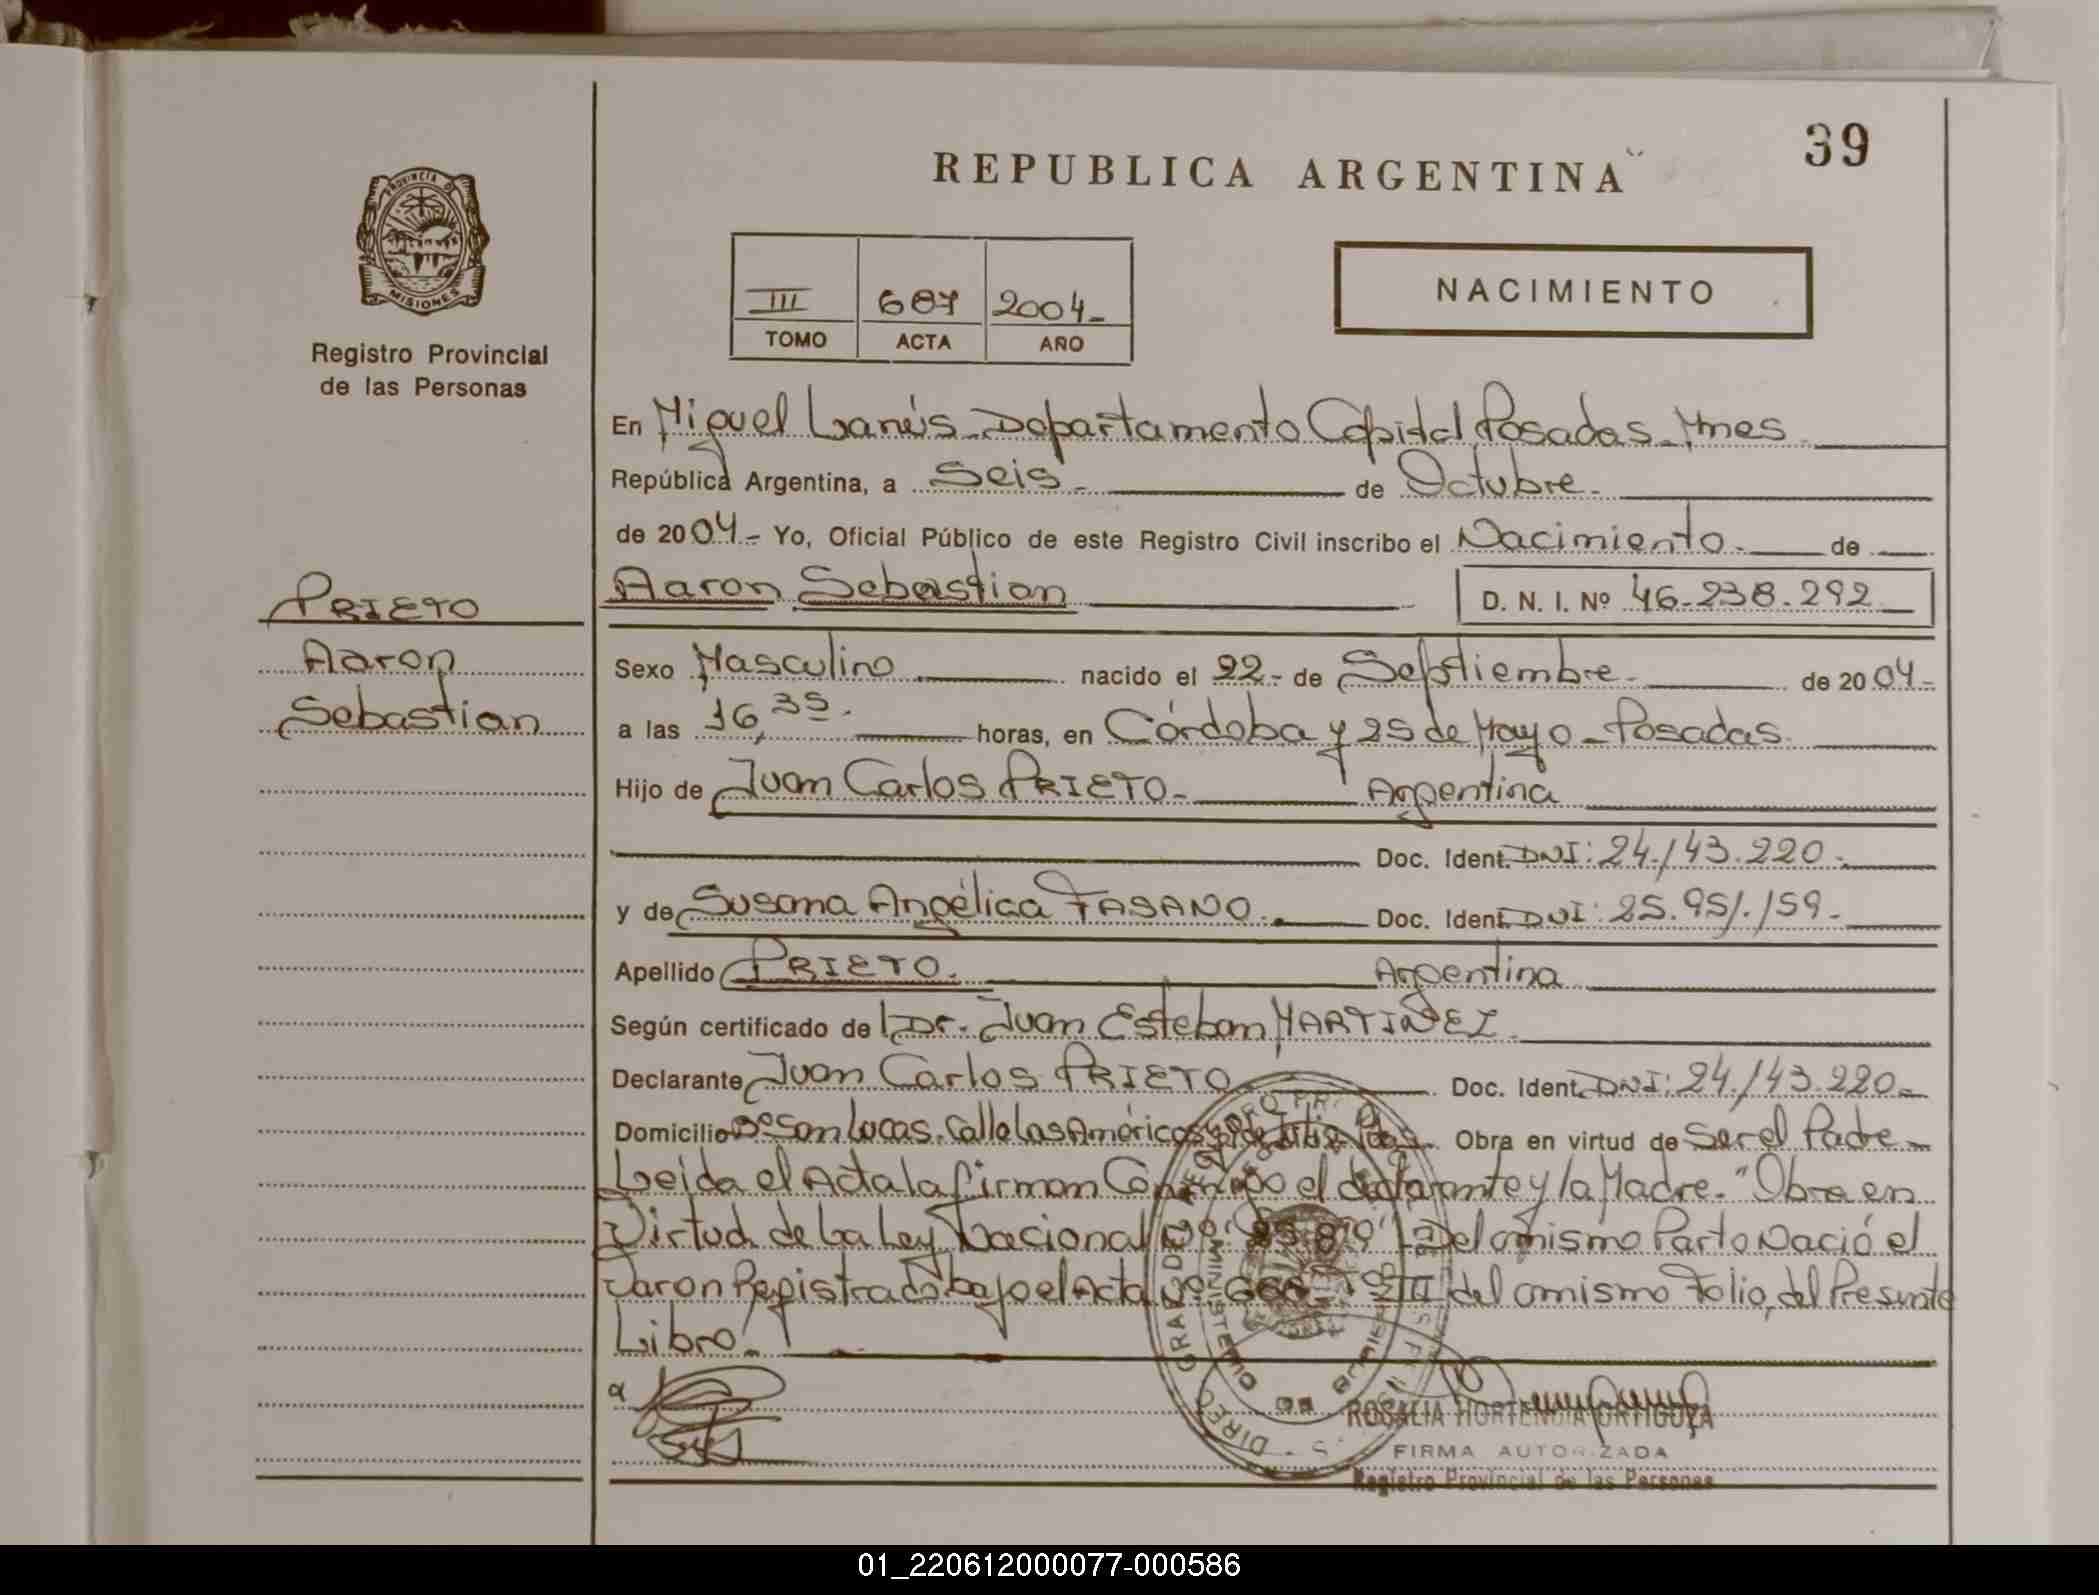 39
REPUBLICA ARGENTINA
PROVINCIA DE
MISIONES
Registro Provincial
de las Personas
III 687 2004-
TOMO ACTA AÑO
NACIMIENTO
En Miguel Lanús - Departamento Capital Posadas - Mnes
República Argentina, a Seis - de Octubre -
de 2004 - Yo, Oficial Público de este Registro Civil inscribo el Nacimiento - de
Aaron Sebastian D. N. I. Nº 46-238.292
PRIETO
Aaron
Sebastian
Sexo Masculino nacido el 22 - de Septiembre - de 2004 -
a las 16,35 - horas, en Córdoba y 25 de Mayo - Posadas
Hijo de Juan Carlos PRIETO - Argentina
Doc. Ident. DNI: 24.143.220 -
y de Susana Angélica FASANO - Doc. Ident. DNI: 25.951.159 -
Apellido PRIETO - Argentina
Según certificado de Dr. Juan Esteban MARTINEZ -
Declarante Juan Carlos PRIETO Doc. Ident. DNI: 24.143.220 -
Domicilio Bº San Lucas. Calle Las Américas Obra en virtud de Ser el Padre -
Leida el Acta la firman Conmigo el declarante y la Madre. "Obra en
Virtud de La Ley Nacional Nº Del mismo Parto Nació el
Varon Registrado bajo el Acta Nº Tº III del mismo Folio, del Presente
Libro.
ROSALIA HORTENCIA ORTIGOZA
FIRMA AUTORIZADA
Registro Provincial de las Personas
01_220612000077-000586